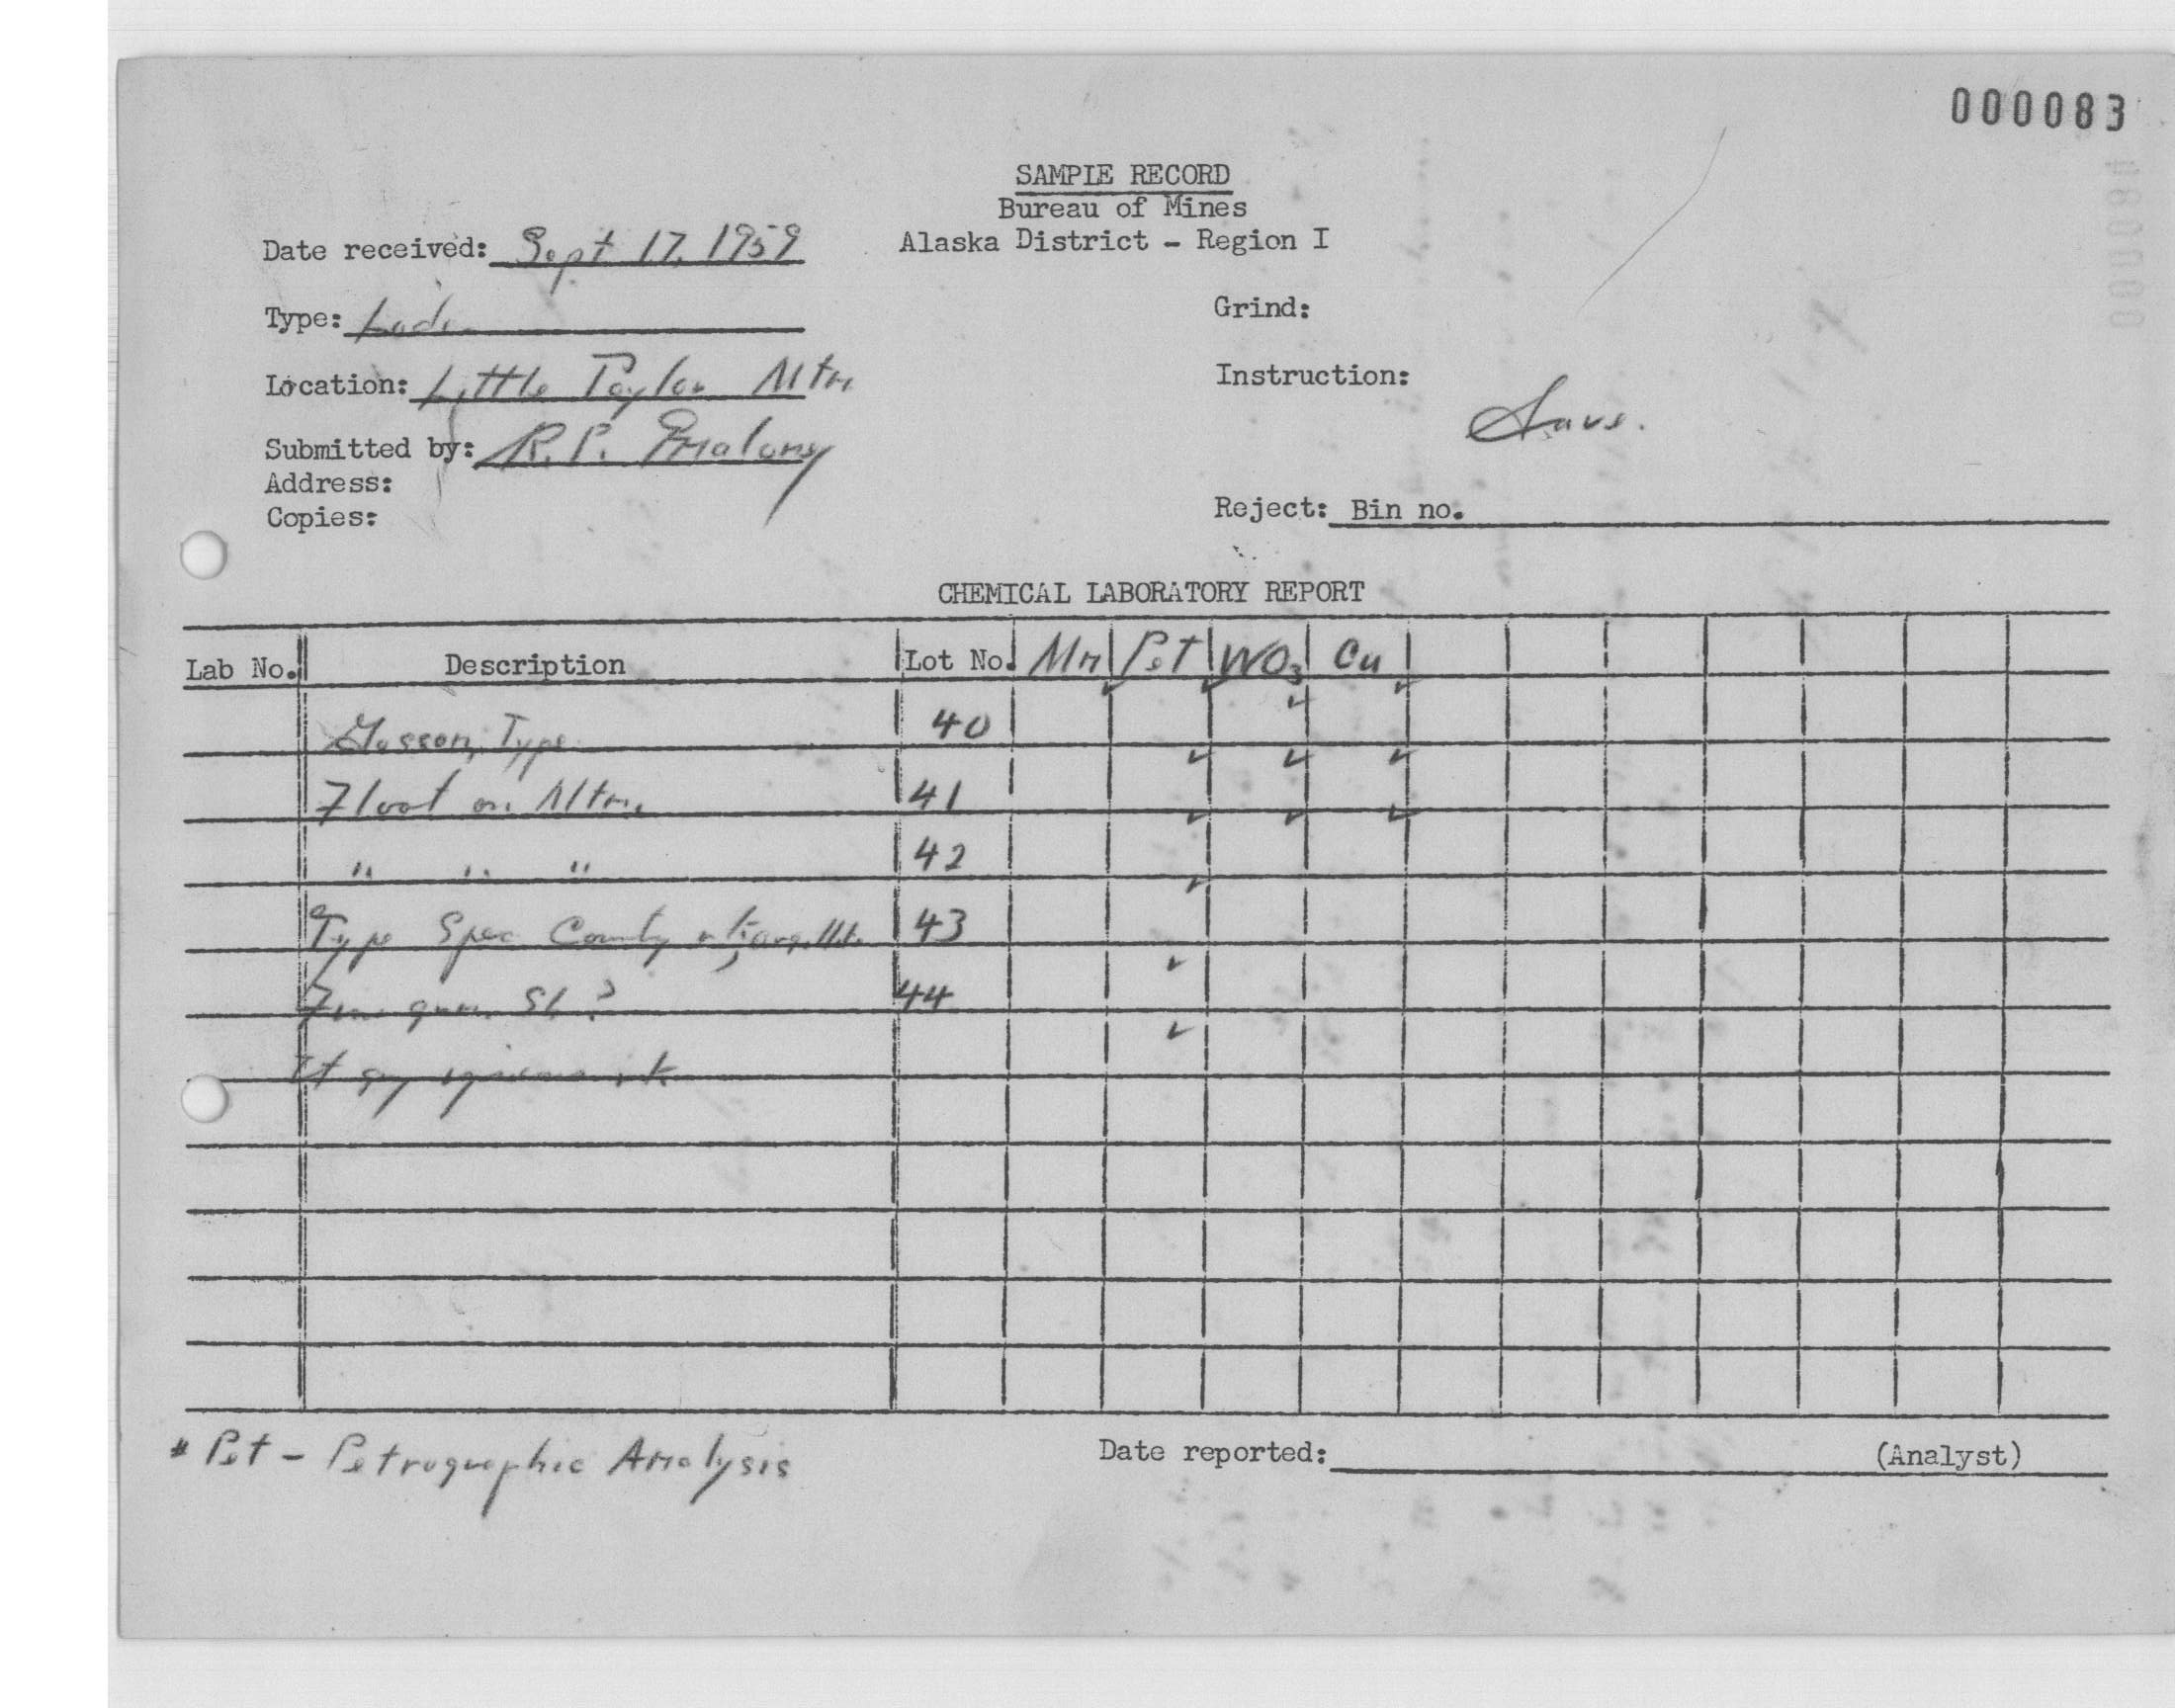 000083
SAMPLE RECORD
Bureau of Mines
Alaska District - Region I
Date received: Sept 17, 1959
Type: Lode
Grind:
Location: Little Taylor Mtn
Instruction: Save.
Submitted by: R.P. Maloney
Address:
Copies:
Reject: Bin no.
CHEMICAL LABORATORY REPORT
Lab No. Description Lot No. Mn Pet WO3 Cu
✓ ✓ ✓ ✓
Gossan, Type 40
✓ ✓ ✓
Float on Mtn. 41
✓ ✓ ✓
" " " 42
✓
Type Spec County 43
✓
44
✓
* Pet - Petrographic Analysis
Date reported: (Analyst)